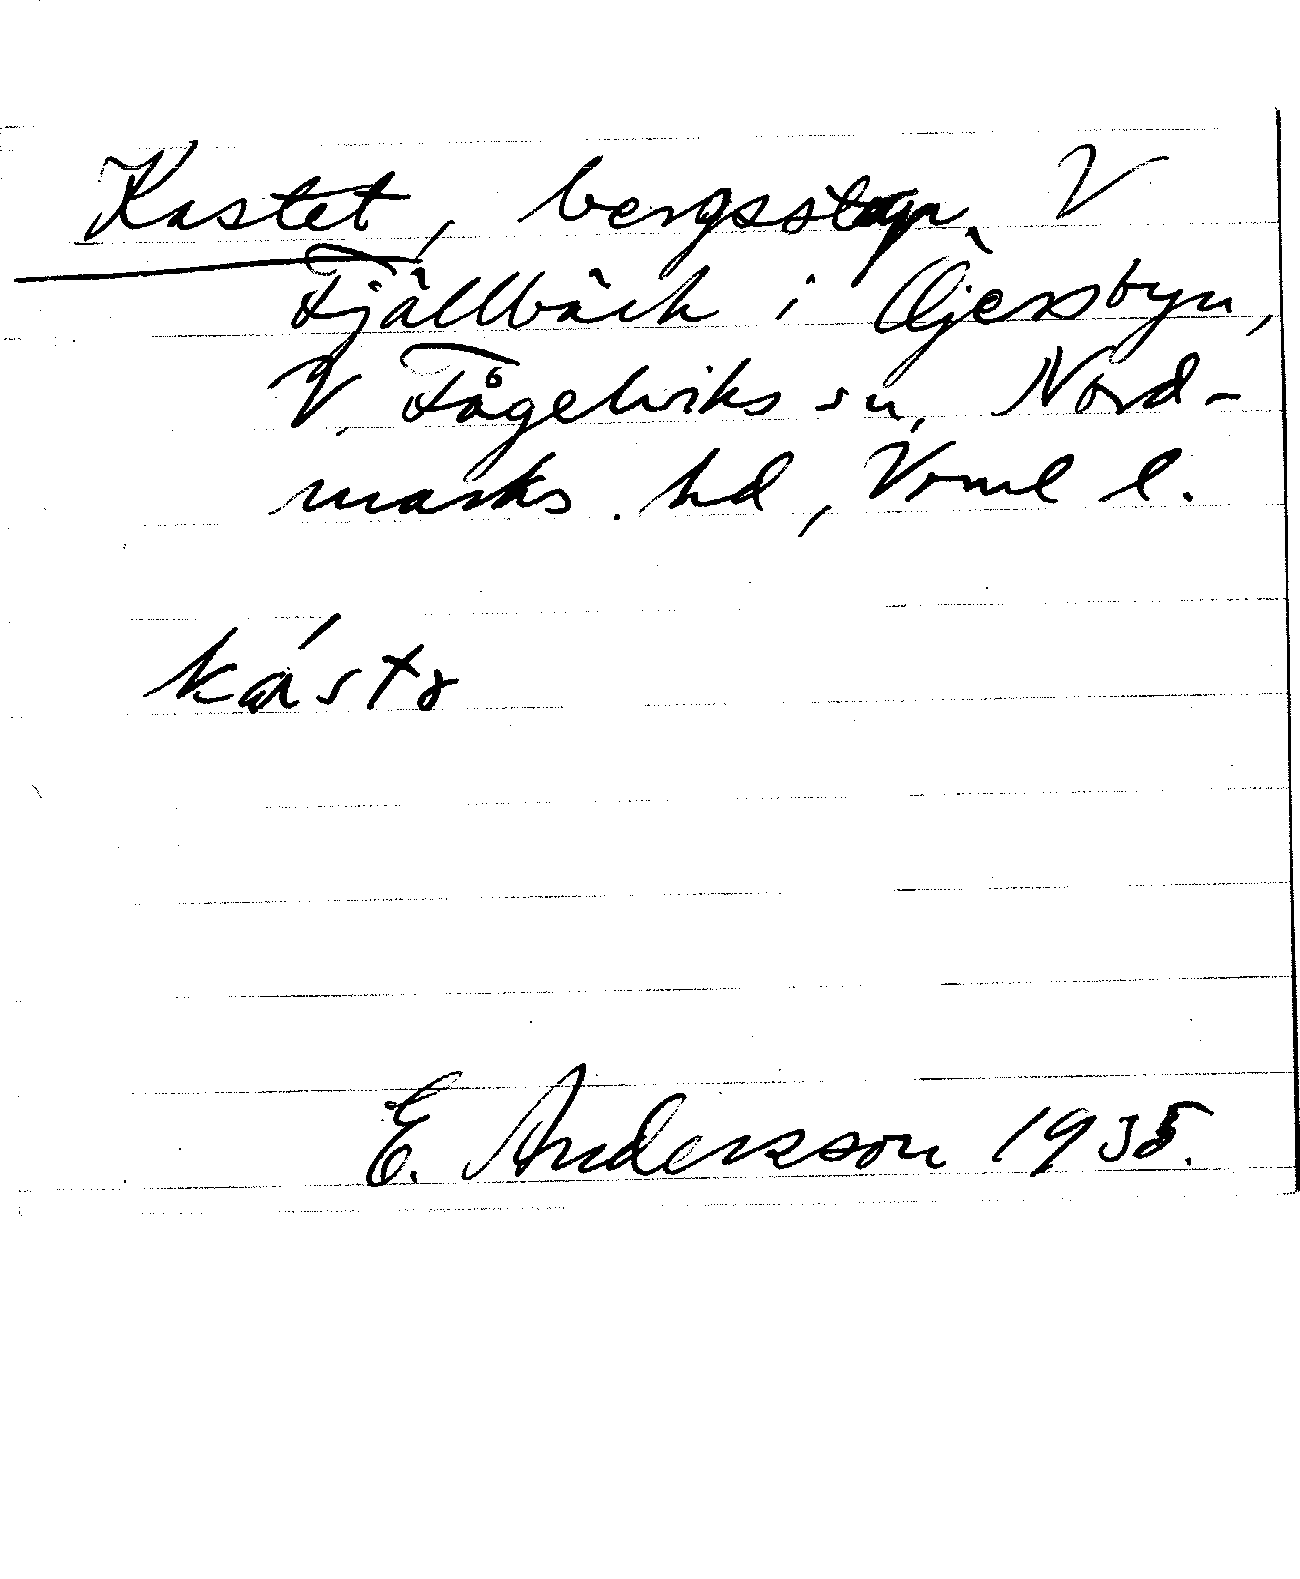 Kastet, bergsstup, V
Fjällbäck i Öjersbyn,
V. Fågelviks sn, Nord-
marks hd, Vrml l.
kást
E. Andersson 1935.